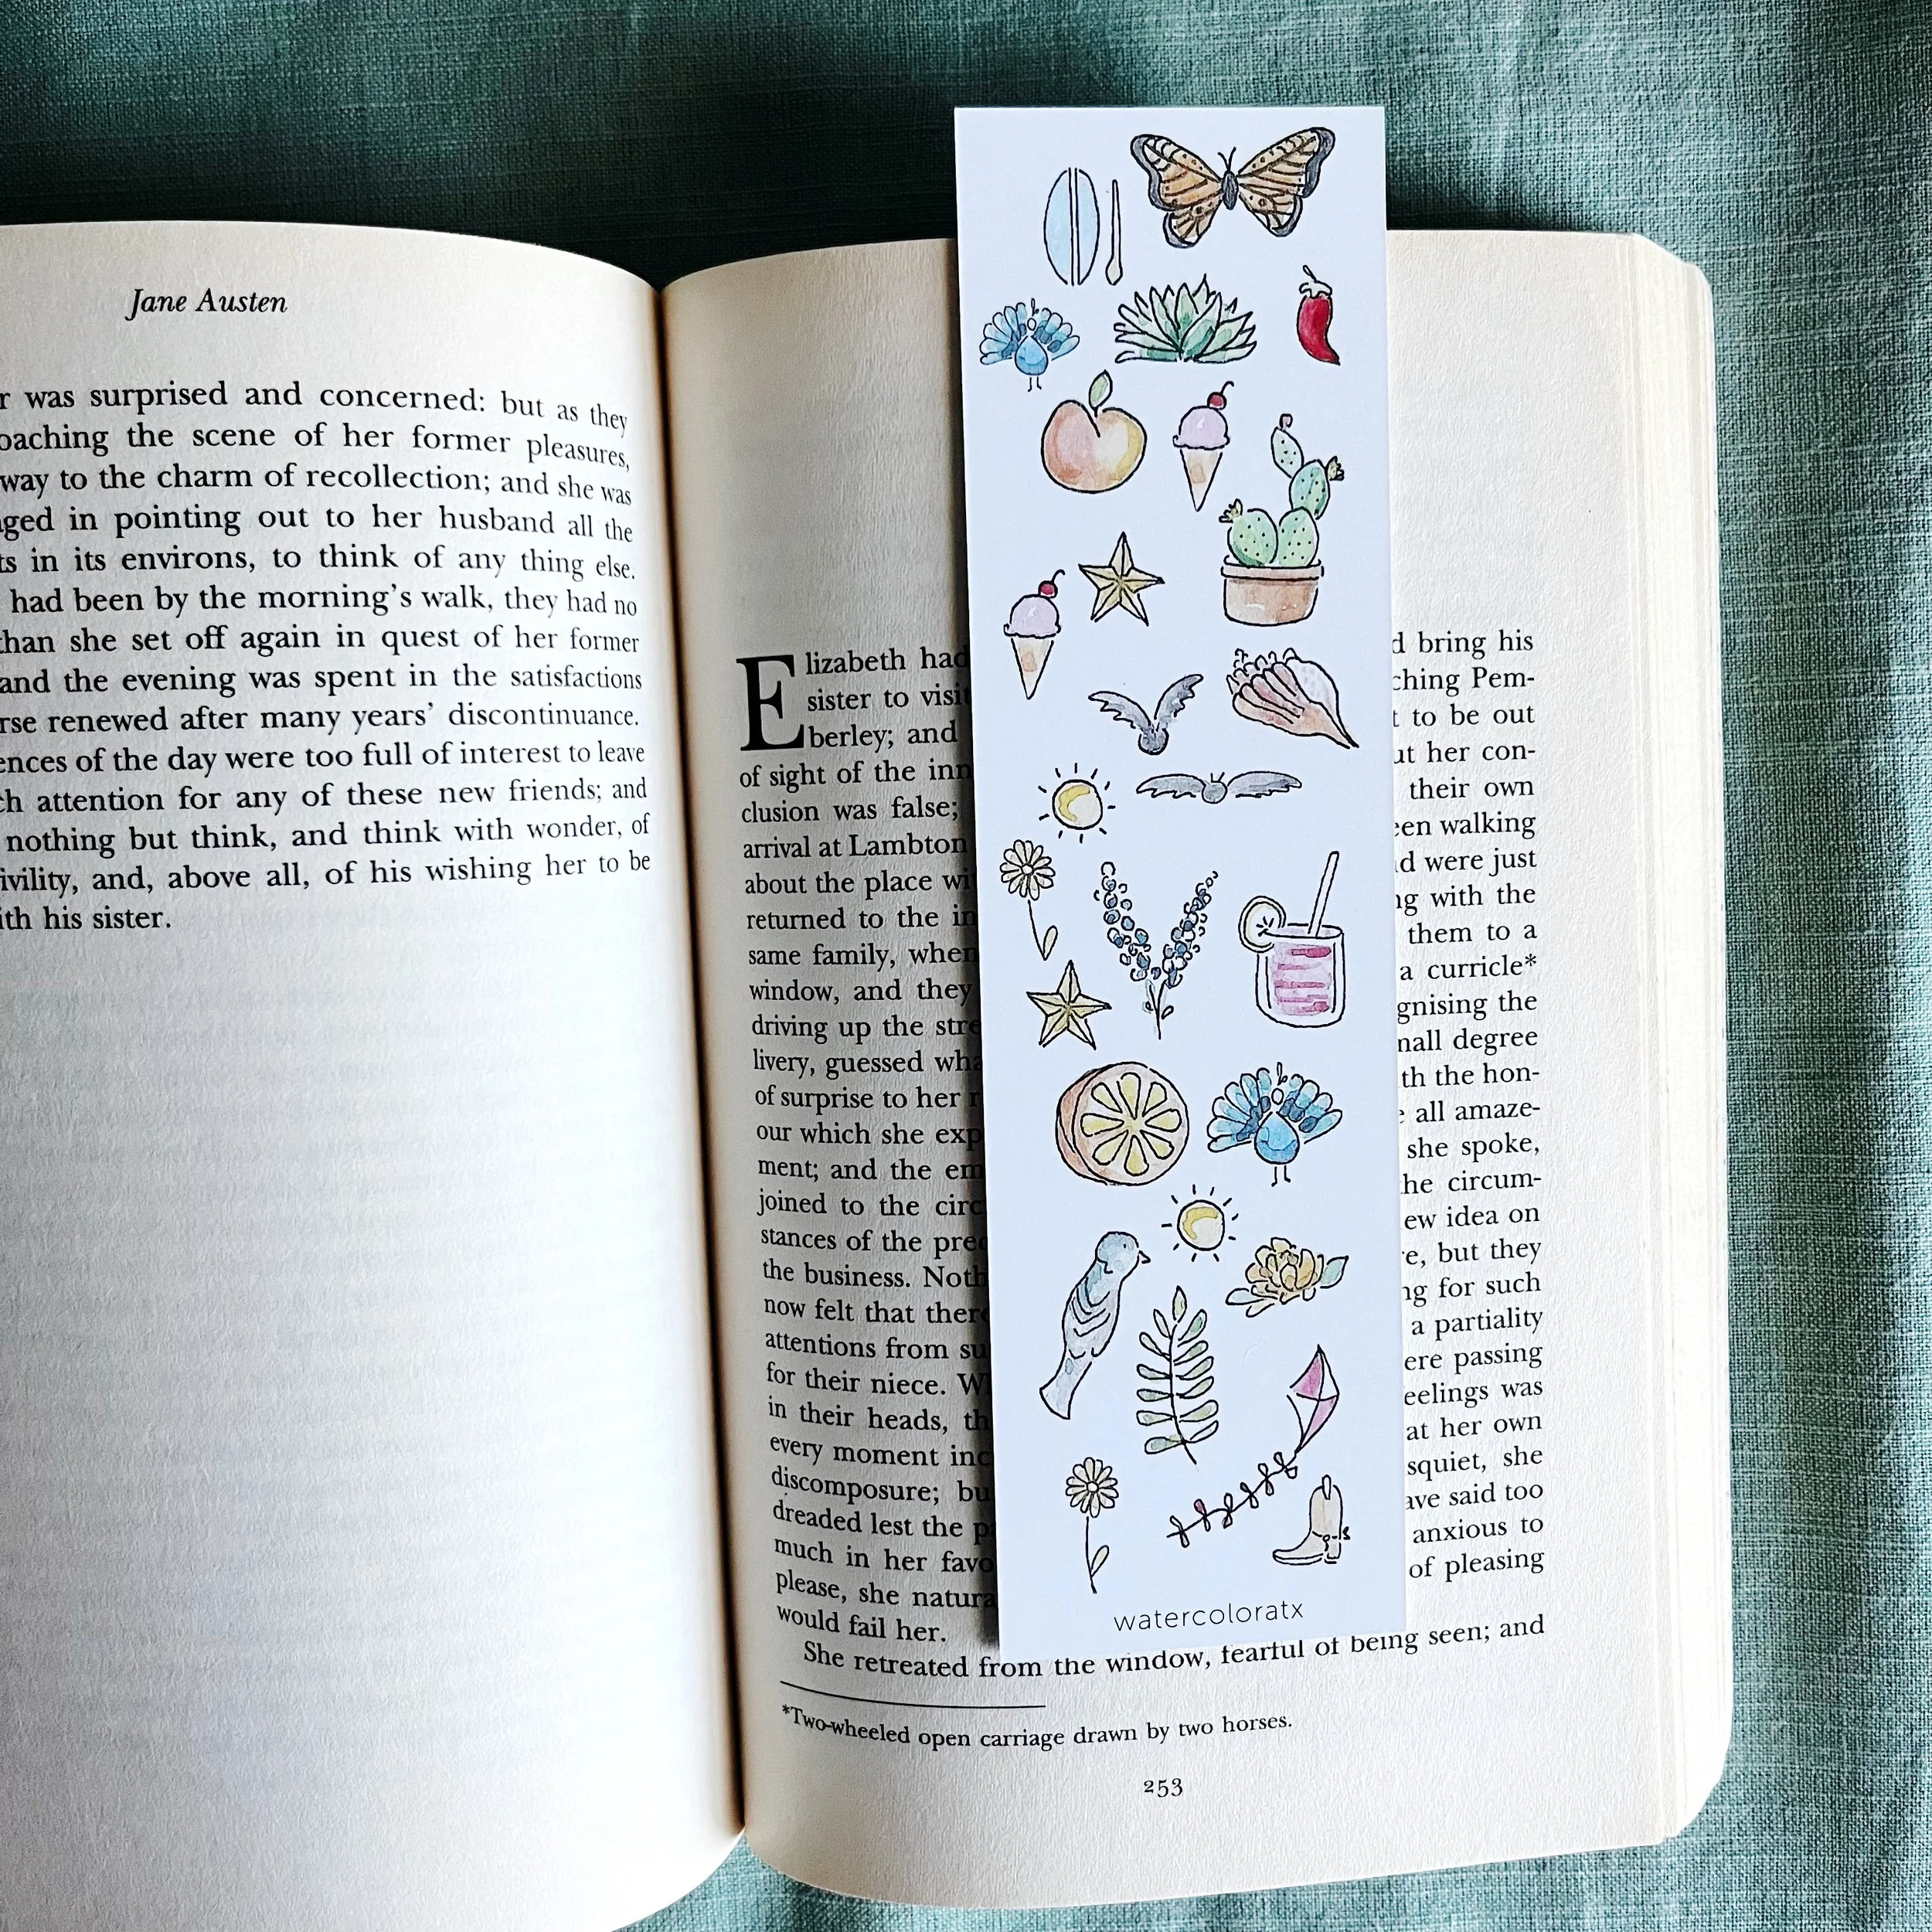 Jane Austen
was surprised and concerned: but as they
the scene of her former pleasures,
way to the charm of recollection; and she was
in pointing out to her husband all the
in its environs, to think of any thing else.
had been by the morning's walk, they had no
than she set off again in quest of her former
and the evening was spent in the satisfactions
renewed after many years' discontinuance.
of the day were too full of interest to leave
attention for any of these new friends; and
nothing but think, and think with wonder, of
and, above all, of his wishing her to be
with his sister.
Elizabeth had bring his
sister to visit Pem-
berley; and to be out
of sight of the inn her con-
clusion was false; their own
arrival at Lambton walking
about the place were just
returned to the with the
same family, when them to a
window, and they a curricle*
driving up the the
livery, guessed degree
of surprise to her the hon-
our which she all amaze-
ment; and the she spoke,
joined to the circum-
stances of the idea on
the business. but they
now felt that for such
attentions from a partiality
for their niece. passing
in their heads, was
every moment at her own
discomposure; but she
dreaded lest the said too
much in her anxious to
please, she of pleasing
would fail her.
She retreated from the window, fearful of being seen; and
*Two-wheeled open carriage drawn by two horses.
253
watercoloratx